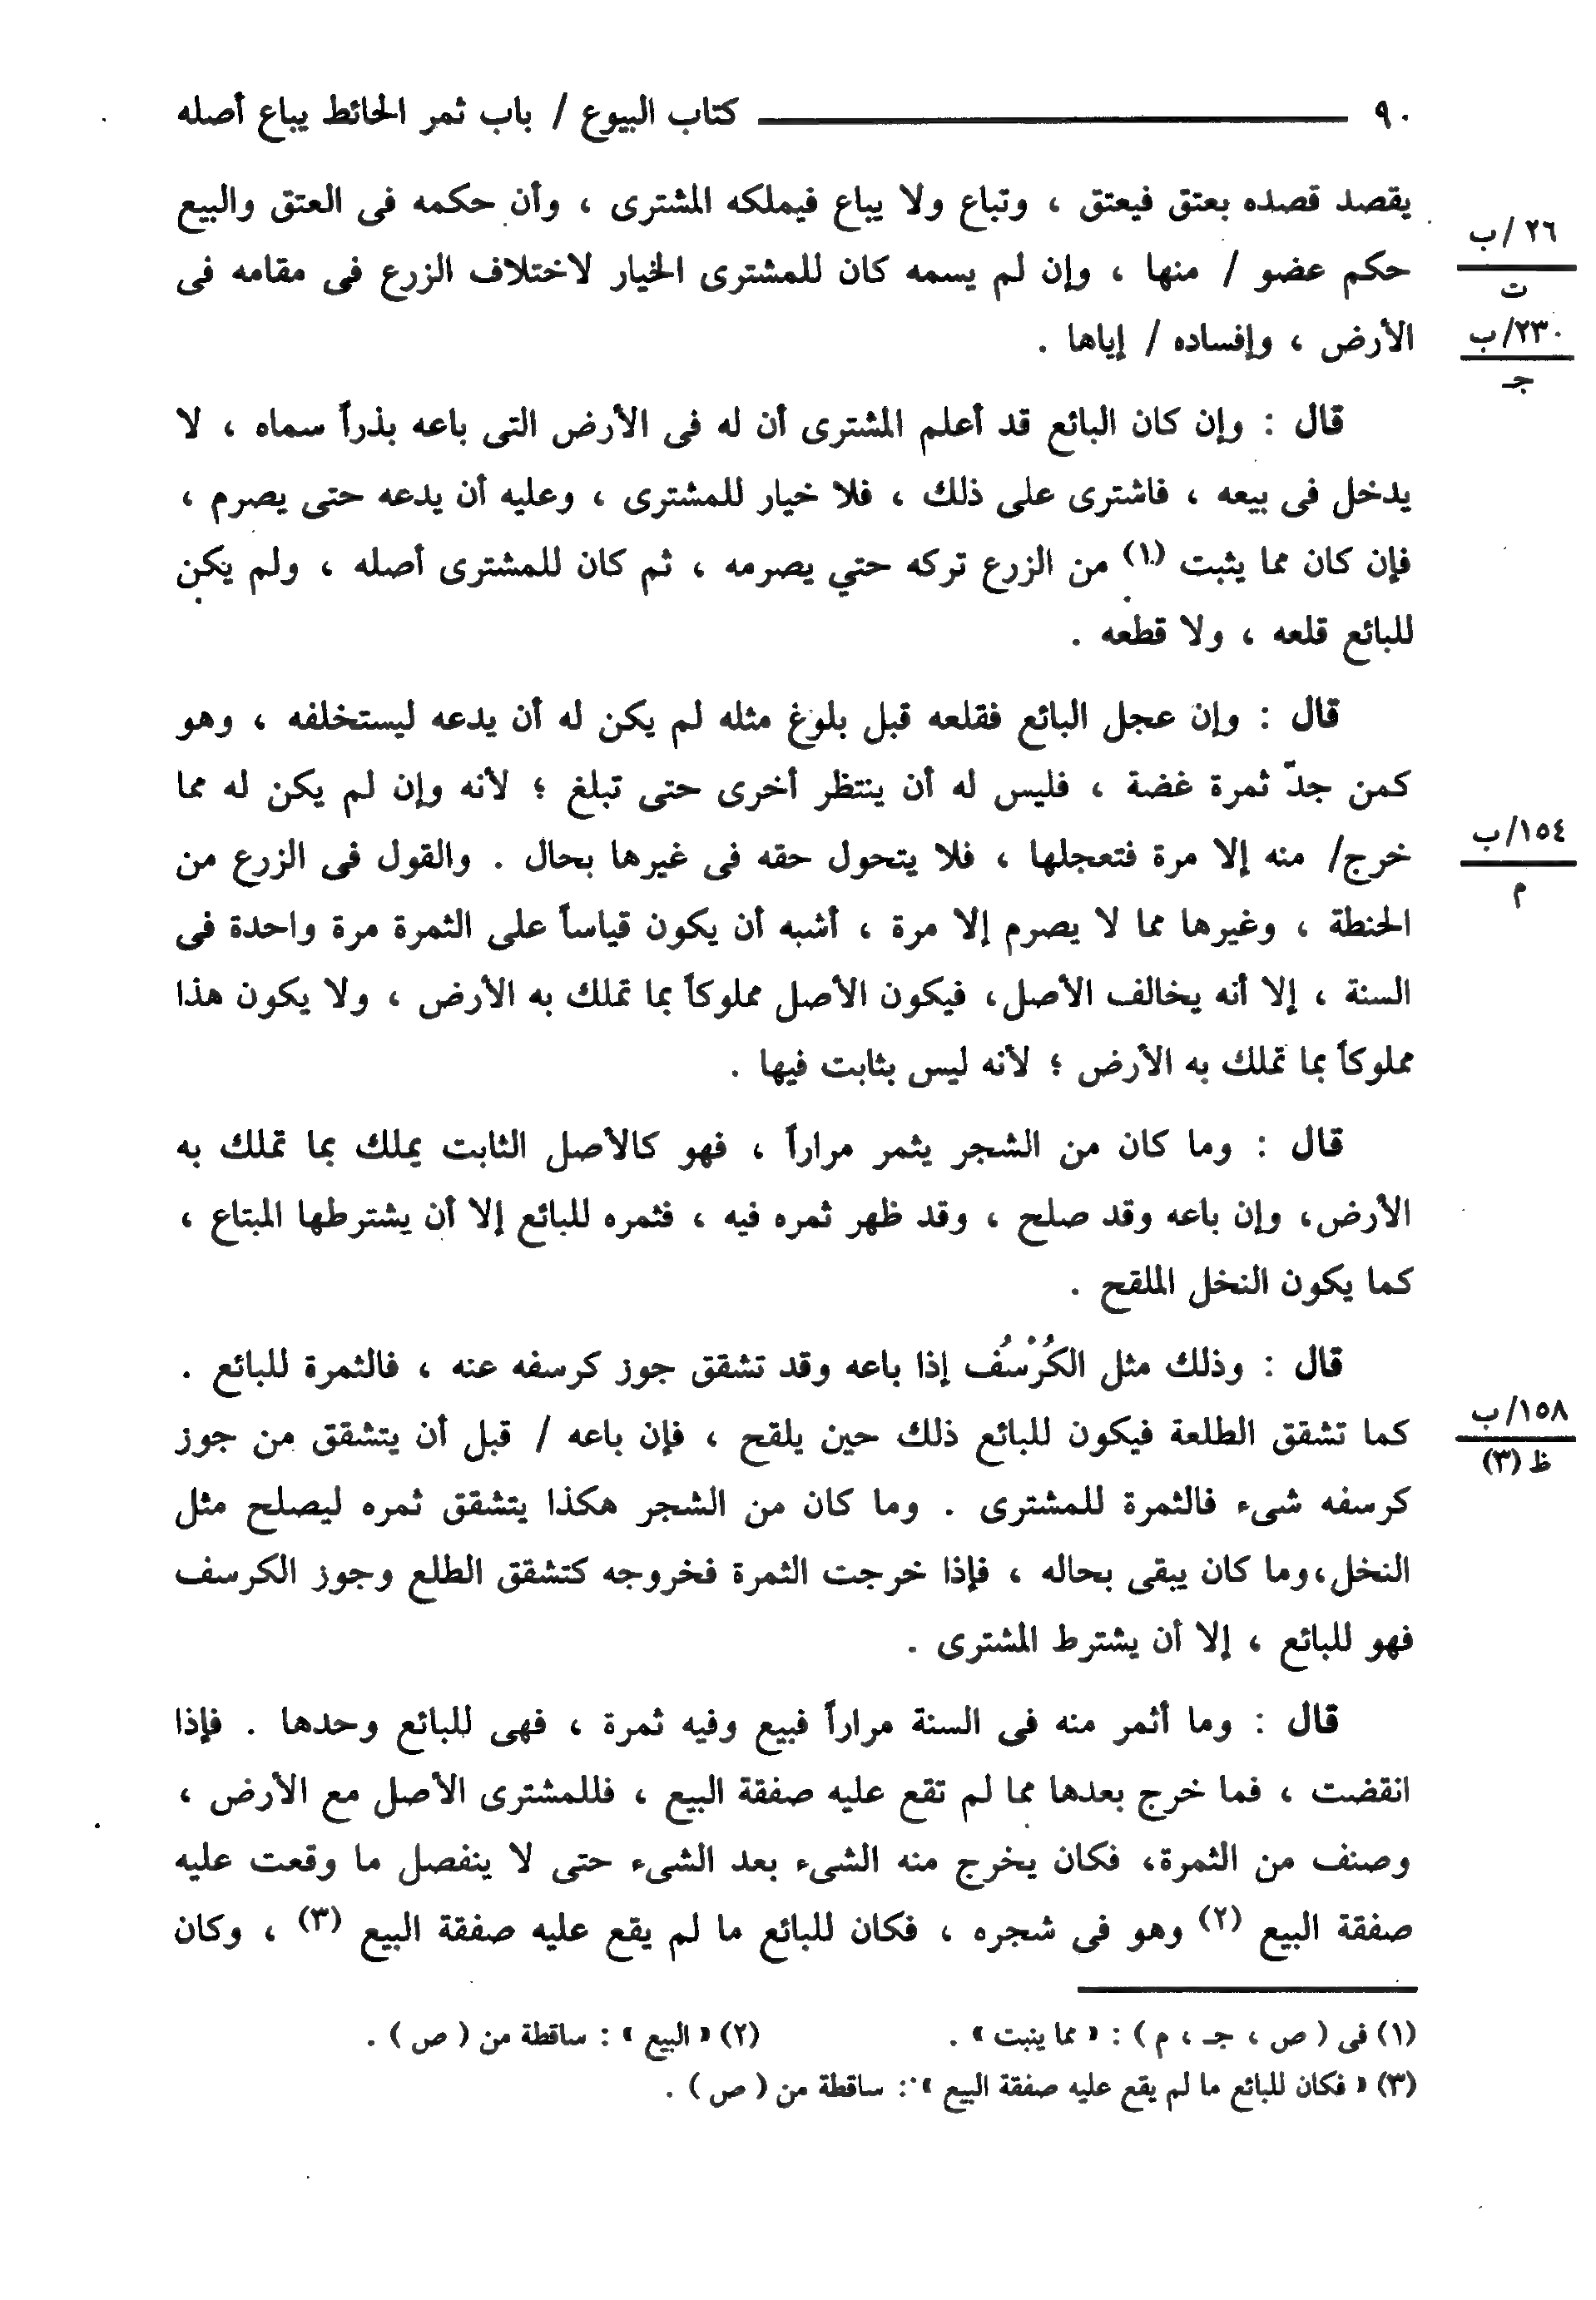 ٩٠ كتاب البيوع / باب ثمر الحائط يباع أصله
يقصد قصده بعتق فيعتق ، وتباع ولا يباع فيملكه المشترى ، وأن حكمه فى العتق والبيع
٢٦ /ب
حكم عضو / منها ، وإن لم يسمه كان للمشترى الخيار لاختلاف الزرع فى مقامه فى
ت
٢٣٠/ب
الأرض ، وإفساده / إياها .
جـ
قال : وإن كان البائع قد أعلم المشترى أن له فى الأرض التى باعه بذراً سماه ، لا
يدخل فى بيعه ، فاشترى على ذلك ، فلا خيار للمشترى ، وعليه أن يدعه حتى يصرم ،
فإن كان مما يثبت (١) من الزرع تركه حتي يصرمه ، ثم كان للمشترى أصله ، ولم يكن
للبائع قلعه ، ولا قطعه .
قال : وإن عجل البائع فقلعه قبل بلوغ مثله لم يكن له أن يدعه ليستخلفه ، وهو
كمن جدّ ثمرة غضة ، فليس له أن ينتظر أخرى حتى تبلغ ؛ لأنه وإن لم يكن له مما
١٥٤/ب
خرج/ منه إلا مرة فتعجلها ، فلا يتحول حقه فى غيرها بحال . والقول فى الزرع من
م
الحنطة ، وغيرها مما لا يصرم إلا مرة ، أشبه أن يكون قياساً على الثمرة مرة واحدة فى
السنة ، إلا أنه يخالف الأصل، فيكون الأصل مملوكاً بما تملك به الأرض ، ولا يكون هذا
مملوكاً بما تملك به الأرض ؛ لأنه ليس بثابت فيها .
قال : وما كان من الشجر يثمر مراراً ، فهو كالأصل الثابت يملك بما تملك به
الأرض، وإن باعه وقد صلح ، وقد ظهر ثمره فيه ، فثمره للبائع إلا أن يشترطها المبتاع ،
كما يكون النخل الملقح .
قال : وذلك مثل الكُرْسُف إذا باعه وقد تشقق جوز كرسفه عنه ، فالثمرة للبائع .
١٥٨/ب
كما تشقق الطلعة فيكون للبائع ذلك حين يلقح ، فإن باعه / قبل أن يتشقق من جوز
ظ (٣)
كرسفه شىء فالثمرة للمشترى . وما كان من الشجر هكذا يتشقق ثمره ليصلح مثل
النخل،وما كان يبقى بحاله ، فإذا خرجت الثمرة فخروجه كتشقق الطلع وجوز الكرسف
فهو للبائع ، إلا أن يشترط المشترى .
قال : وما أثمر منه فى السنة مراراً فبيع وفيه ثمرة ، فهى للبائع وحدها . فإذا
انقضت ، فما خرج بعدها مما لم تقع عليه صفقة البيع ، فللمشترى الأصل مع الأرض ،
وصنف من الثمرة، فكان يخرج منه الشىء بعد الشىء حتى لا ينفصل ما وقعت عليه
صفقة البيع (٢) وهو فى شجره ، فكان للبائع ما لم يقع عليه صفقة البيع (٣) ، وكان
(١) فى ( ص ، جـ ، م ) : « مما ينبت » . (٢) « البيع » : ساقطة من ( ص ) .
(٣) « فكان للبائع ما لم يقع عليه صفقة البيع » : ساقطة من ( ص ) .